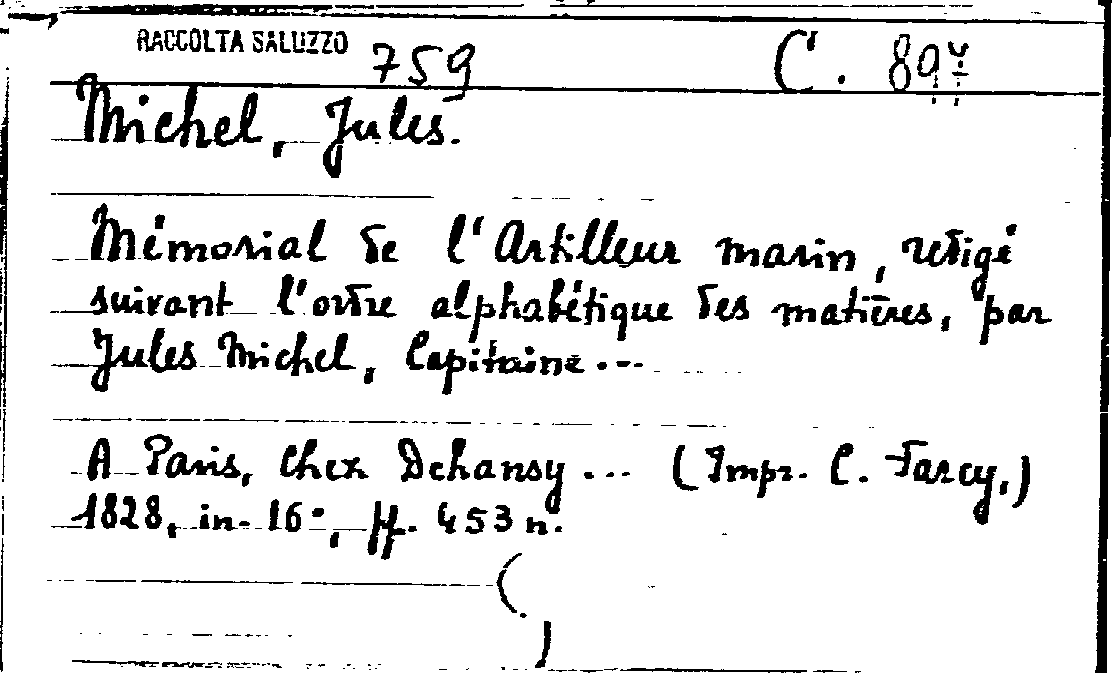 RACCOLTA SALUZZO 759 C. 897
Michel, Jules.
Mémorial de l'Artilleur marin, redigé
suivant l'ordre alphabétique des matières, par
Jules Michel, Capitaine...
A Paris, Chez Dehansy... (Impr. C. Farcy.)
1828, in-16°, ff. 453 n.